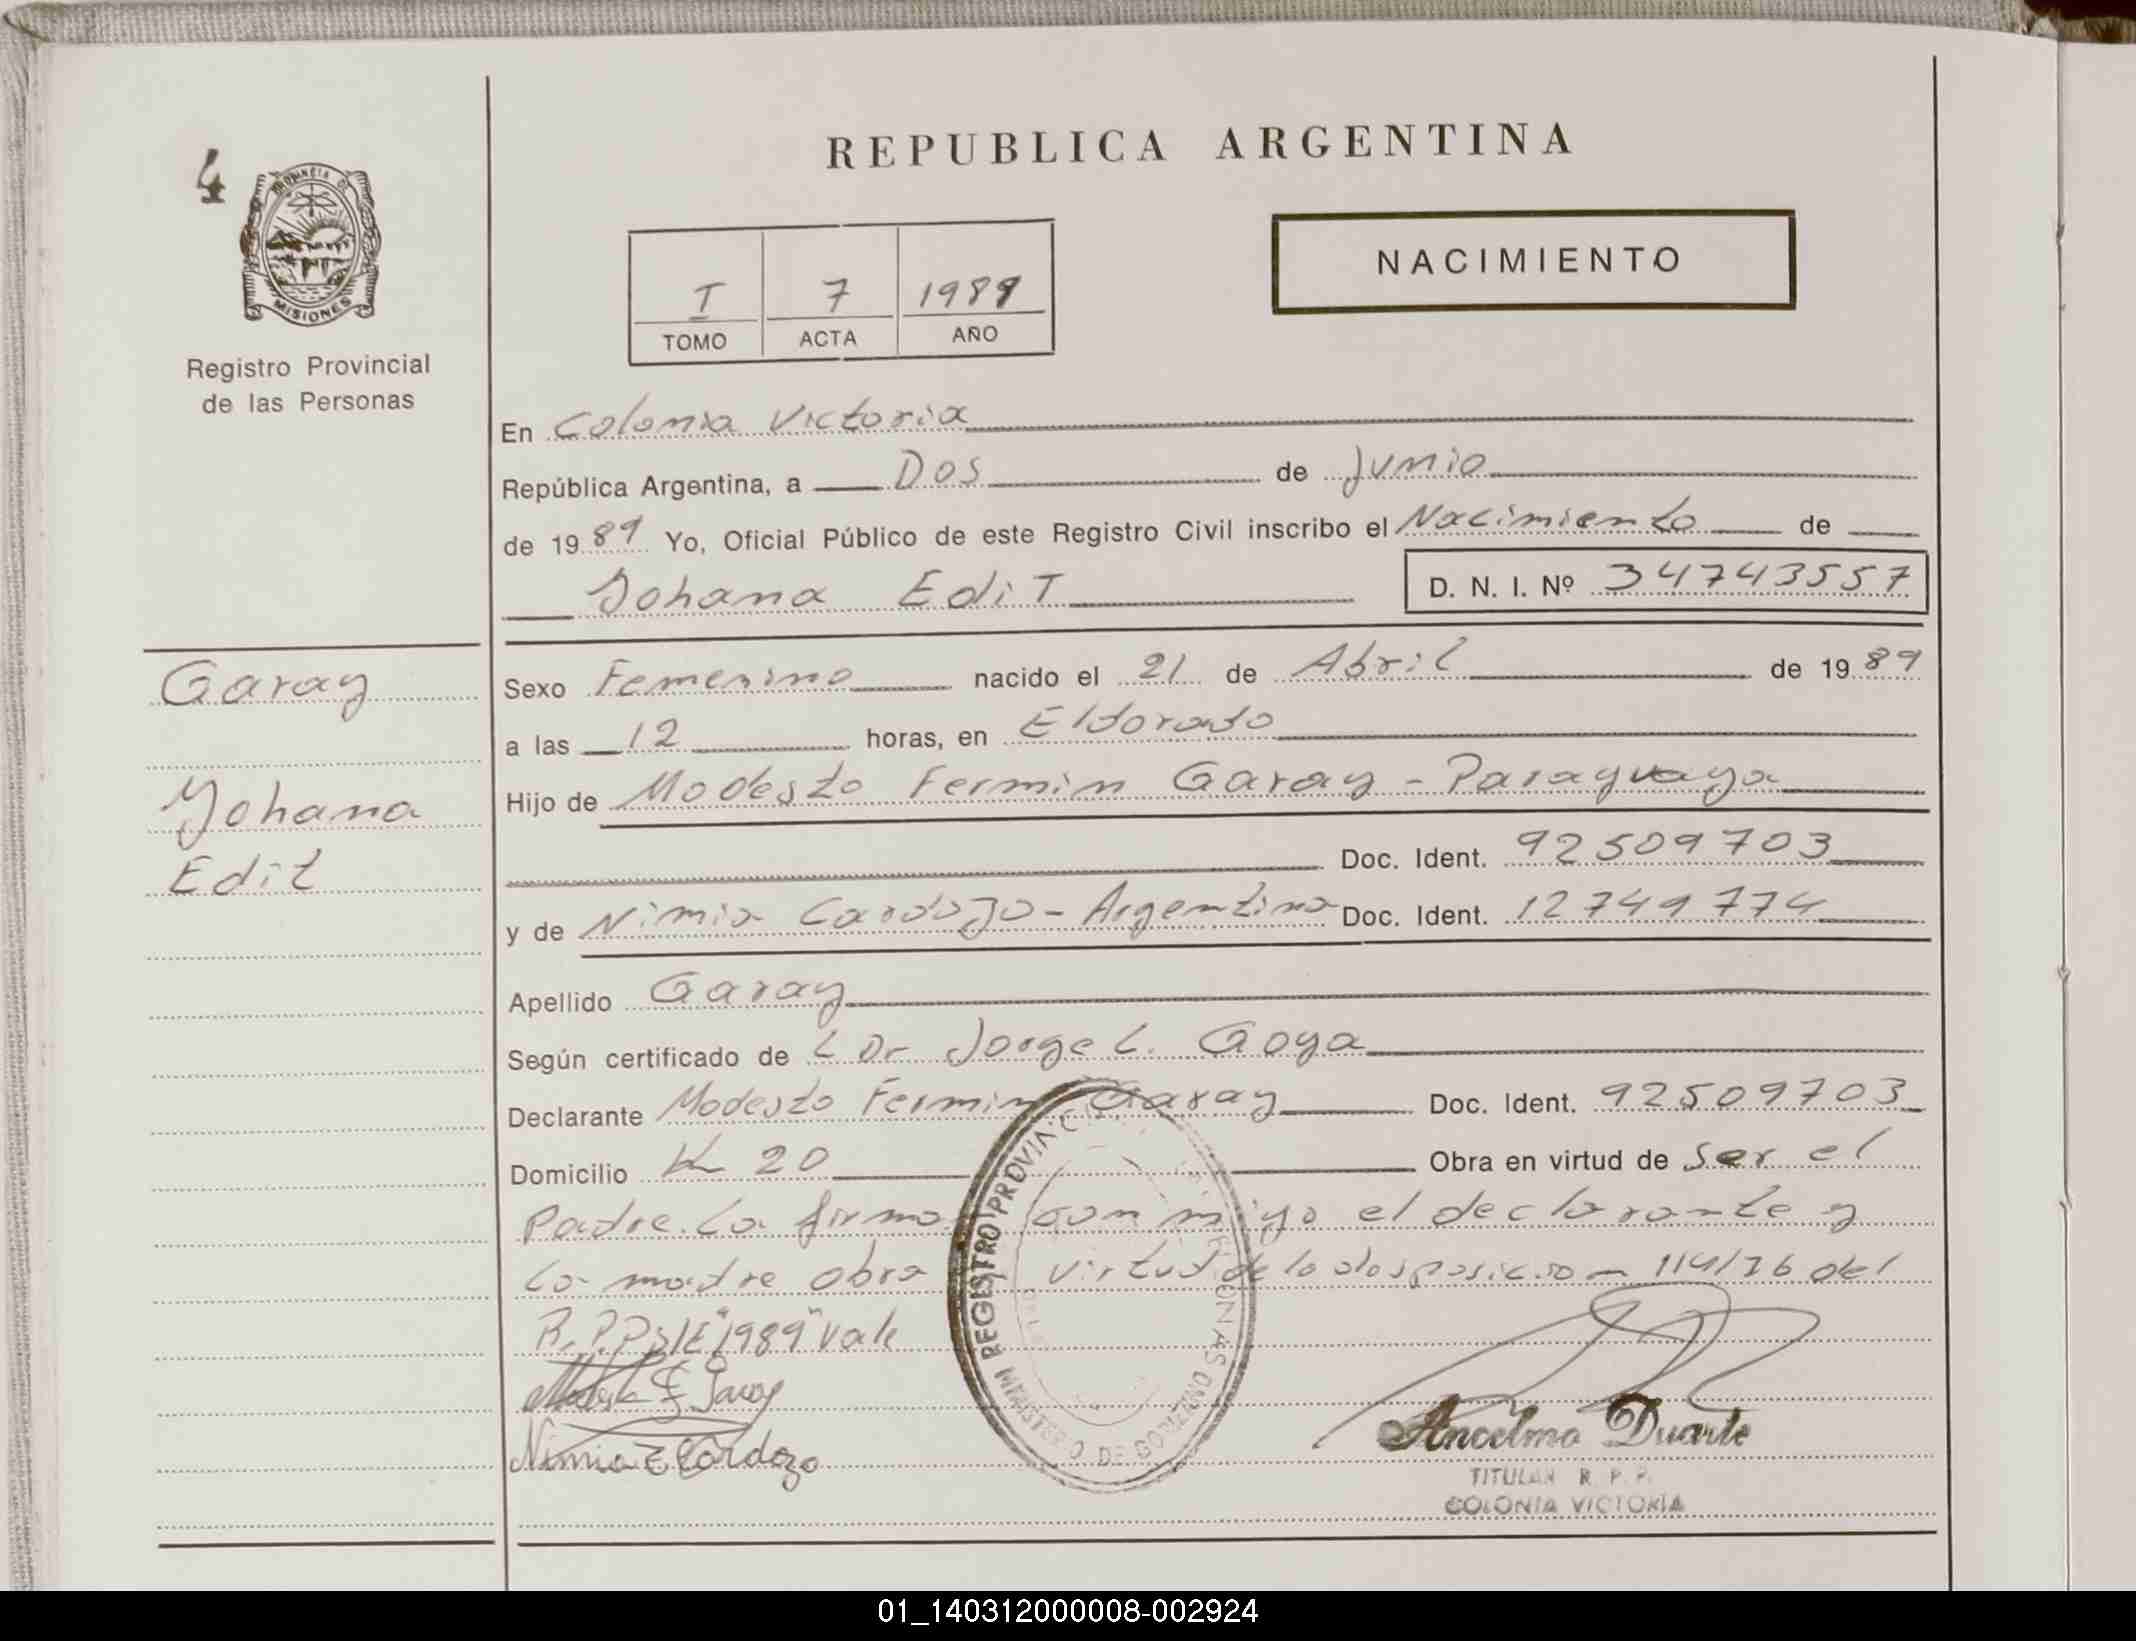 REPUBLICA ARGENTINA
4
PROVINCIA DE
MISIONES
Registro Provincial
de las Personas
NACIMIENTO
I 7 1989
TOMO ACTA AÑO
En Colonia Victoria
República Argentina, a Dos de Junio
de 1989 Yo, Oficial Público de este Registro Civil inscribo el Nacimiento de
Yohana Edit D. N. I. Nº 34743557
Garay
Yohana
Edit
Sexo Femenino nacido el 21 de Abril de 1989
a las 12 horas, en Eldorado
Hijo de Modesto Fermin Garay - Paraguaya
Doc. Ident. 92509703
y de Nimia Cardozo - Argentina Doc. Ident. 12749774
Apellido Garay
Según certificado de L Dr Jorge L. Goya
Declarante Modesto Fermin Garay Doc. Ident. 92509703
Domicilio K 20 Obra en virtud de ser el
Padre. La firma conmigo el declarante y
la madre obra virtud de la disposicion 114/76 del
R.P.P S/E "1989" vale
Modesto F Garay
Nimia E Cardozo
REGISTRO PROVINCIAL DE LAS PERSONAS
MINISTERIO DE GOBIERNO
Ancelmo Duarte
TITULAR R. P. P.
COLONIA VICTORIA
01_140312000008-002924